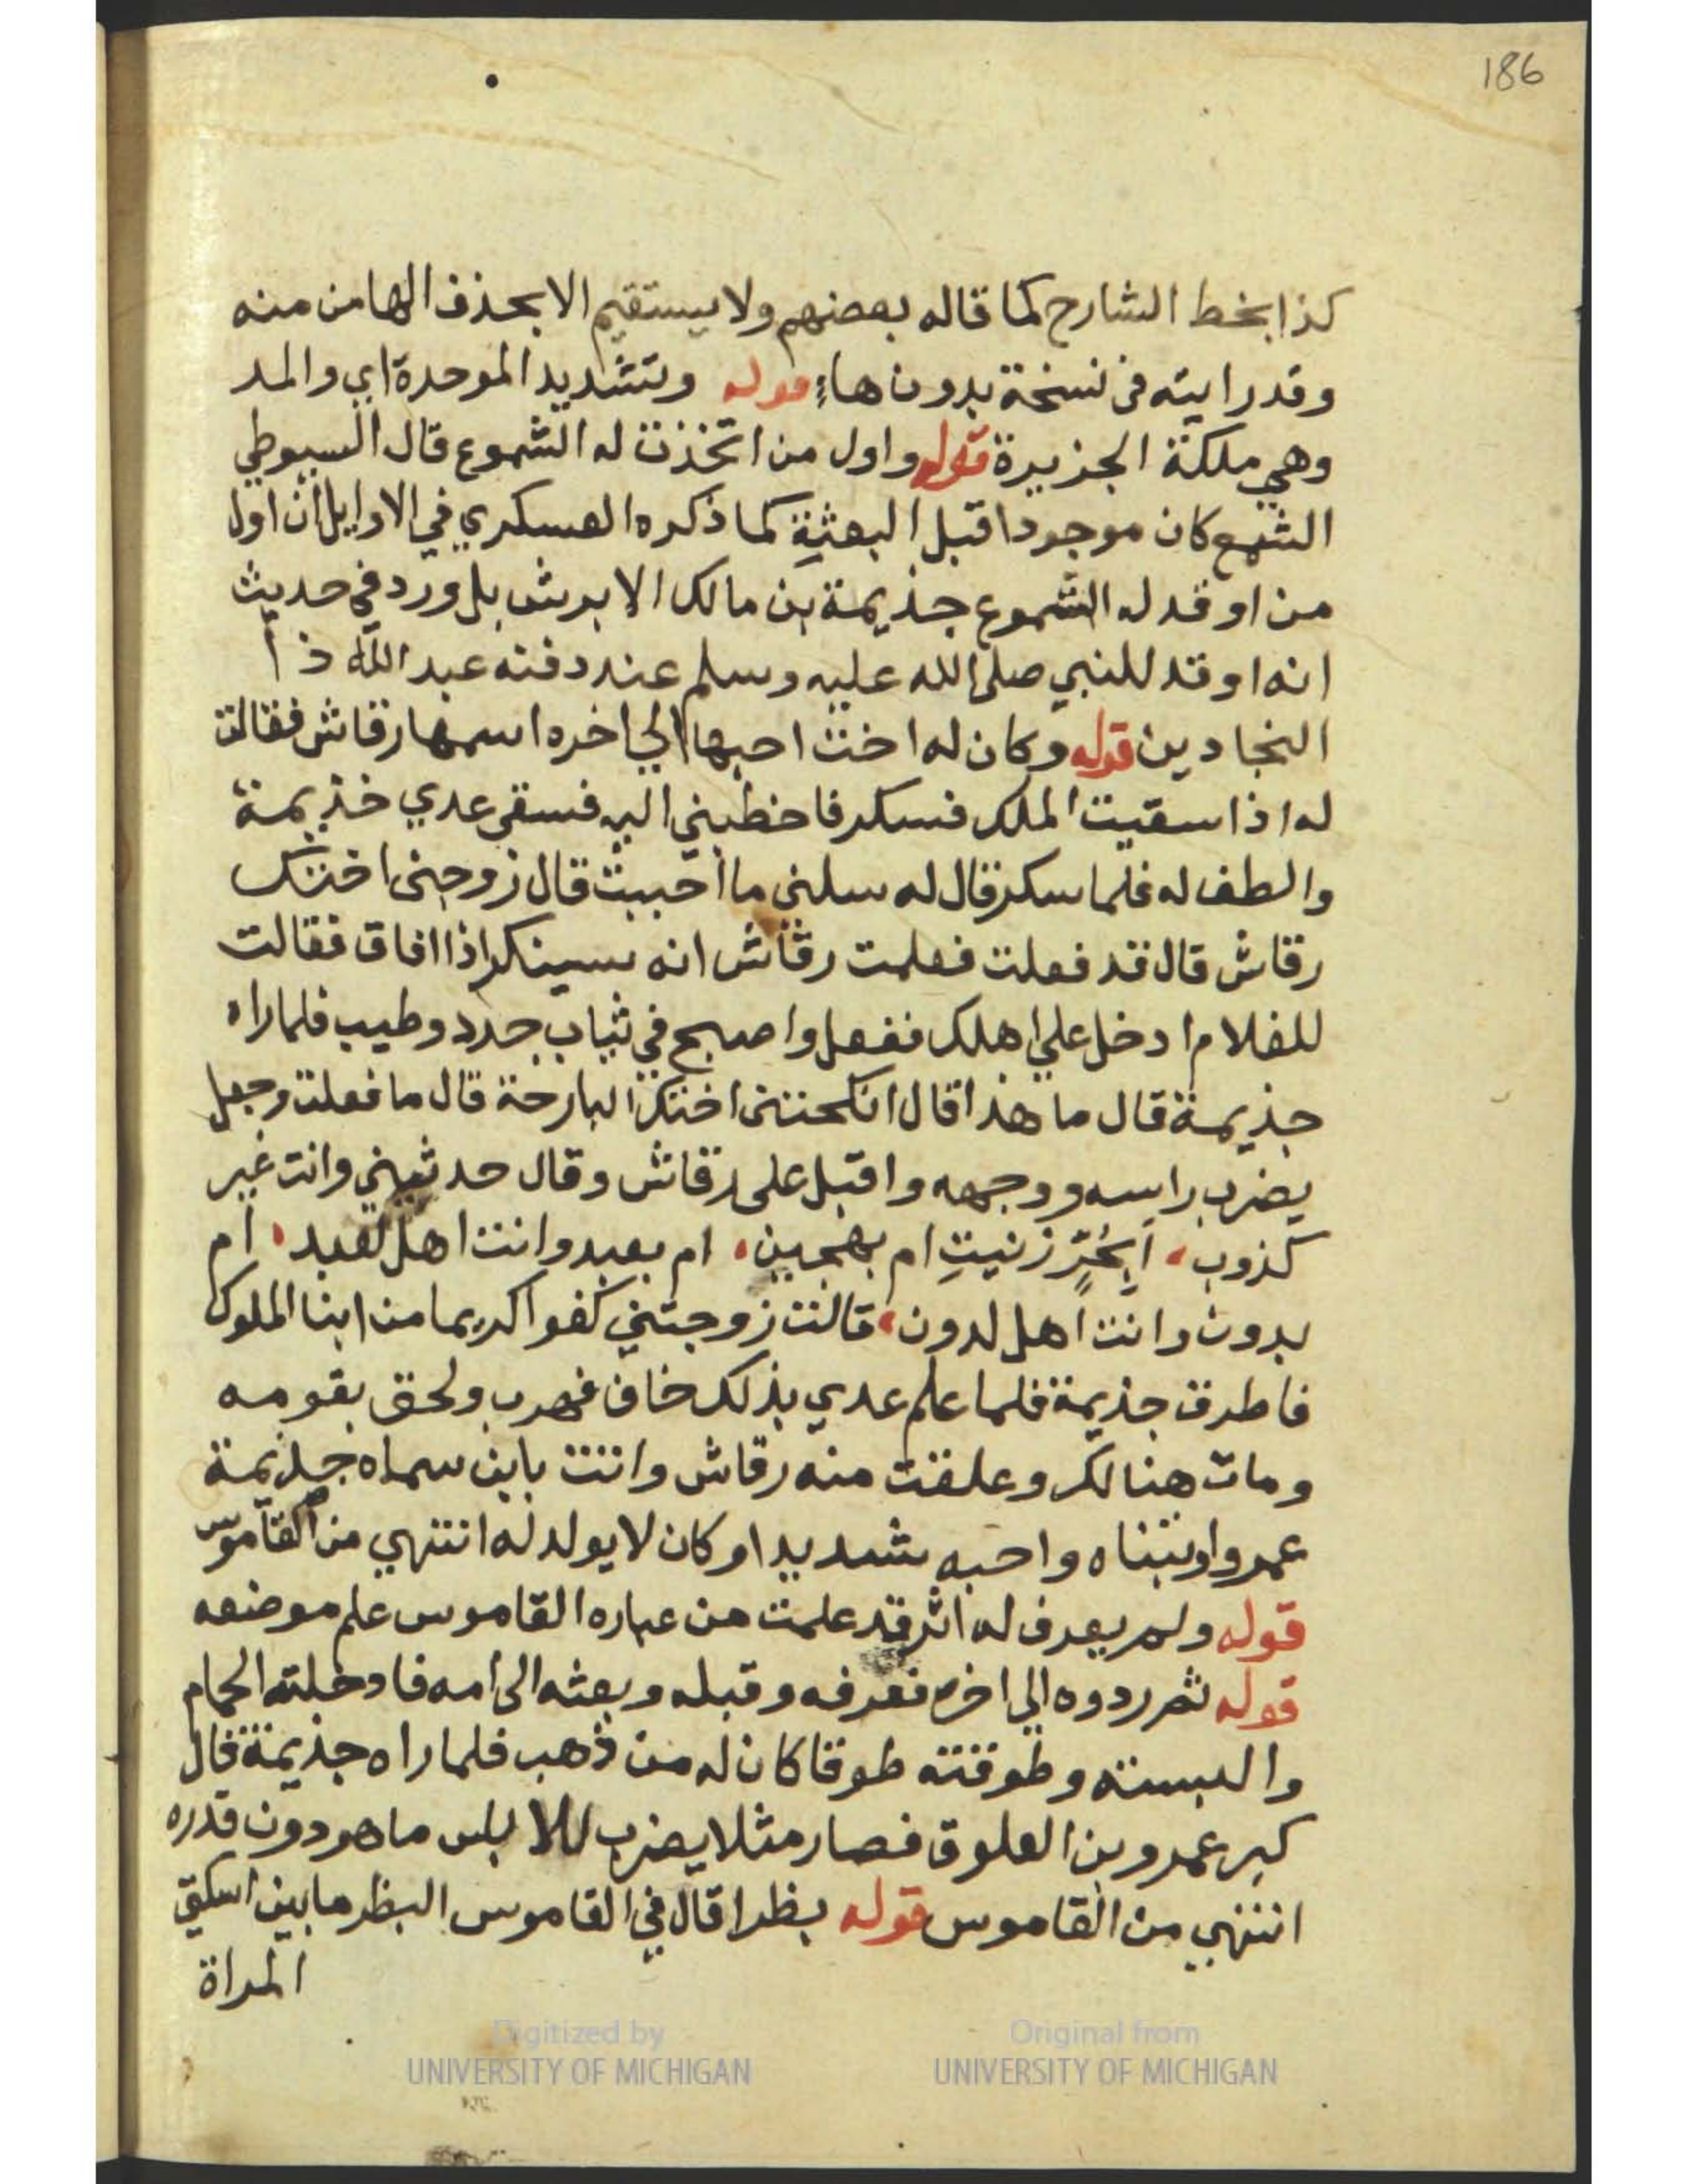 186
كذا بخط الشارح كما قاله بعضهم ولا يستقيم الا بحذف الها من منه
وقد رايته فى نسخة بدون هاء قوله وتشديد الموحدة اي والمد
وهي ملكة الجزيرة قوله واول من اتخذت له الشموع قال السيوطي
الشمع كان موجودا قبل البعثة كما ذكره العسكري في الاوايل ان اول
من اوقد له الشموع جذيمة بن مالك الابرش بل ورد في حديث
انه اوقد للنبي صلى الله عليه وسلم عند دفنه عبد الله ذ ا
النجادين قوله وكان له اخت احبها الي اخره اسمها رقاش فقالت
له اذا سقيت الملك فسكر فاخطبني اليه فسقى عدي خذيمة
والطف له فلما سكر قال له سلنى ما احببت قال زوجنى اختك
رقاش قال قد فعلت فعلمت رقاش انه سينكر اذا افاق فقالت
للغلام ادخل علي اهلك ففعل واصبح في ثياب جدد وطيب فلما راه
جذيمة قال ما هذا قال انكحتنى اختك البارحة قال ما فعلت وجعل
يضرب راسه ووجهه واقبل على رقاش وقال حدثيني وانت غير
كذوب، اَبِحُرٍّ زنيتِ ام بهجين، ام بعبد وانت اهل لعبد، ام
بدون وانت اهل لدون، قالت زوجتني كفوا كريما من ابنا الملوك
فاطرق جذيمة فلما علم عدي بذلك خاف فهرب ولحق بقومه
ومات هنالك وعلقت منه رقاش واتت بابن سماه جذيمة
عمروا وتبناه واحبه شديدا وكان لا يولد له انتهي من القاموس
قوله ولم يعرف له اثر قد علمت من عباره القاموس علم موضعه
قوله ثم ردوه الي اخره فعرفه وقبله وبعثه الى امه فادخلته الحمام
والبسته وطوقته طوقا كان له من ذهب فلما راه جذيمة قال
كبر عمرو بن الطوق فصار مثلا يضرب للابس ما هو دون قدره
انتهي من القاموس قوله بظرا قال في القاموس البظر ما بين اسكتي
المراة
Digitized by
UNIVERSITY OF MICHIGAN
Original from
UNIVERSITY OF MICHIGAN